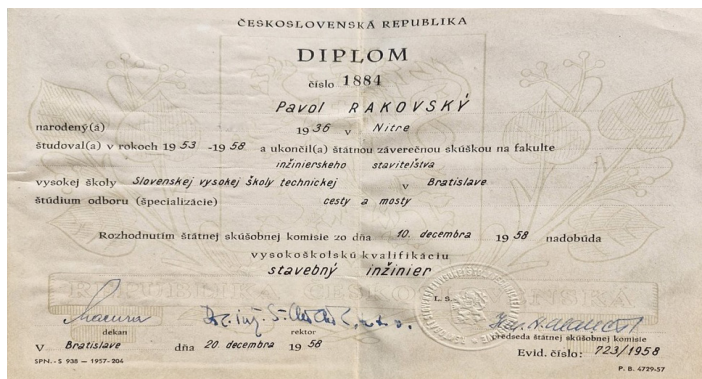 ČESKOSLOVENSKÁ REPUBLIKA
DIPLOM
číslo 1884
Pavol RAKOVSKÝ
narodený(á) 1936 v Nitre
študoval(a) v rokoch 1953 -1958 a ukončil(a) štátnou záverečnou skúškou na fakulte
inžinierskeho staviteľstva
vysokej školy Slovenskej vysokej školy technickej v Bratislave
štúdium odboru (špecializácie) cesty a mosty
Rozhodnutím štátnej skúšobnej komisie zo dňa 10. decembra 1958 nadobúda
vysokoškolskú kvalifikáciu
stavebný inžinier
REPUBLIKA ČESKOSLOVENSKÁ
L. S.
dekan rektor predseda štátnej skúšobnej komisie
V Bratislave dňa 20 decembra 1958 Evid. číslo: 723/1958
SPN. - S 938 — 1957-204 P. B. 4729-57